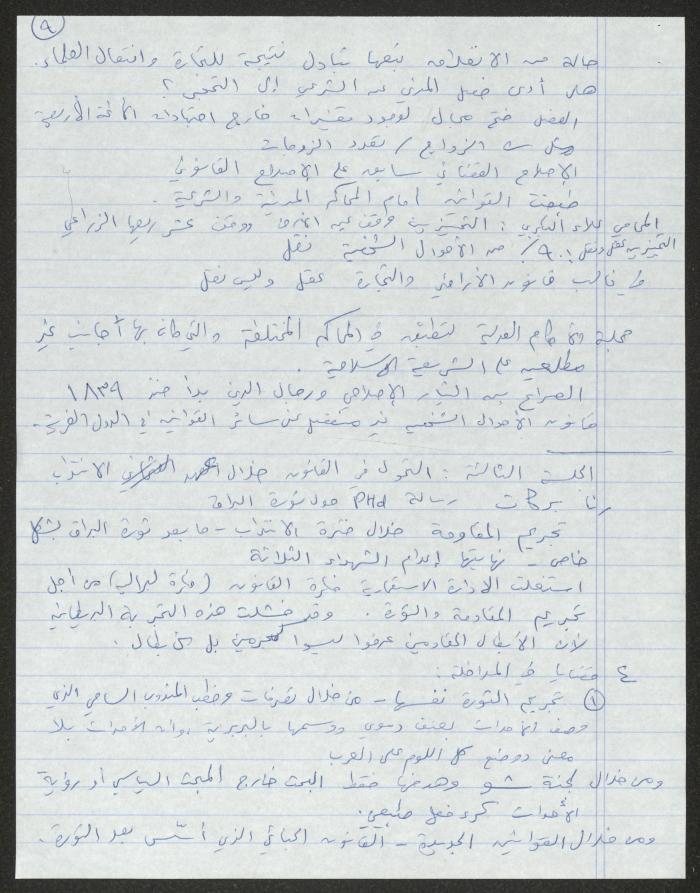 ٩
حالة من الانغلاق بتبعها تبادل نتيجة للتجارة وانتقال العلماء.
هل أدى فصل المدني عن الشرعي إلى التحجر؟
الفصل فتح مجال لوجود تفسيرات خارج اجتهادات الأئمة الأربعة
مثل سن الزواج / تعدد الزوجات
الإصلاح القضائي سابق على الإصلاح القانوني
طبقت القوانين أمام المحاكم المدنية والشرعية.
المحامي علاء البكري: التمييز بين وقف وقف عشر ريعها الزراعي
التمييز بين عقل ونقل: ٩٠٪ من الأحوال الشخصية نقل
في غالب قانون الأراضي والتجارة عقل وليس نقل
مجلة الأحكام العدلية لتطبق في المحاكم المختلطة والتي كان بها أجانب غير
مطلعين على الشريعة الإسلامية.
الصراع بين التيار الإصلاحي ورجال الدين بدأ منذ ١٨٣٩
قانون الأحوال الشخصية غير منفصل عن سائر القوانين في الدول الغربية.
الجلسة الثالثة: التحول في القانون خلال الانتداب
رنا بركات رسالة PHd حول ثورة البراق
تجريم المقاومة خلال فترة الانتداب - ما بعد ثورة البراق بشكل
خاص - نهايتها إعدام الشهداء الثلاثة
استغلت الإدارة الاستعمارية فكرة القانون (فكرة ليبرالية) من أجل
تجريم المقاومة والثورة. وقد فشلت هذه التجربة البريطانية
لأن الأبطال المقاومين عرفوا ليسوا كمجرمين بل كأبطال.
٤ قضايا في المداخلة:
① تجريم الثورة نفسها - من خلال تصرفات وخطب المندوب السامي الذي
وصف الأحداث بعنف دموي ووسمها بالبربرية، وأن الأحداث بلا
معنى ووضع كل اللوم على العرب
ومن خلال لجنة شو وهدفها فقط البحث خارج المبحث السياسي أو رؤية
الأحداث كرد فعل طبيعي.
ومن خلال القوانين الجديدة - القانون الجنائي الذي أسّس بعد الثورة.